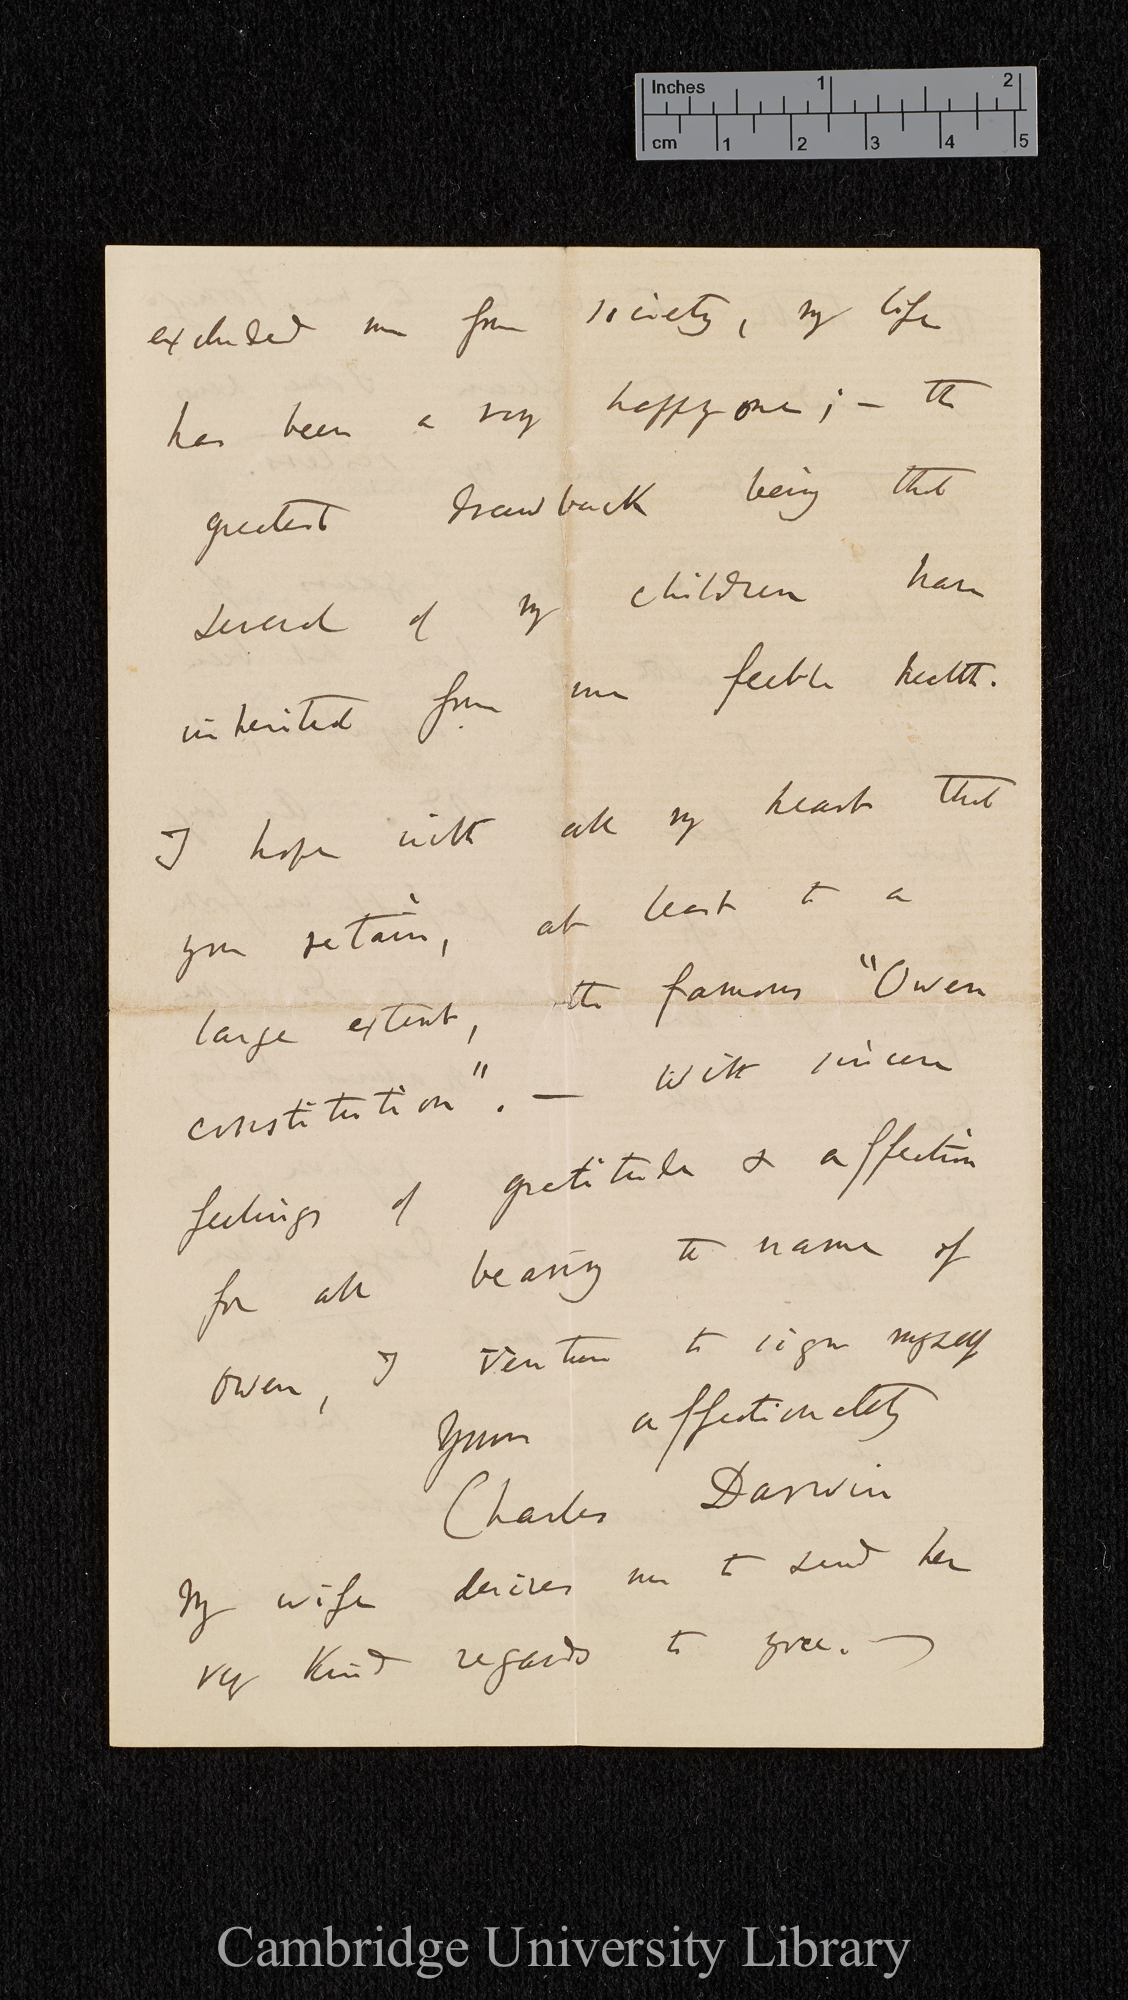 Inches 1 2
cm 1 2 3 4 5
excluded me from society, my life
has been a very happy one; — the
greatest drawback being that
several of my children have
inherited from me feeble health.
I hope with all my heart that
you retain, at least to a
large extent, the famous "Owen
constitution". — With sincere
feelings of gratitude & affection
for all bearing the name of
Owen, I venture to sign myself
Yours affectionately
Charles Darwin
My wife desires me to send her
very kind regards to you. —
Cambridge University Library